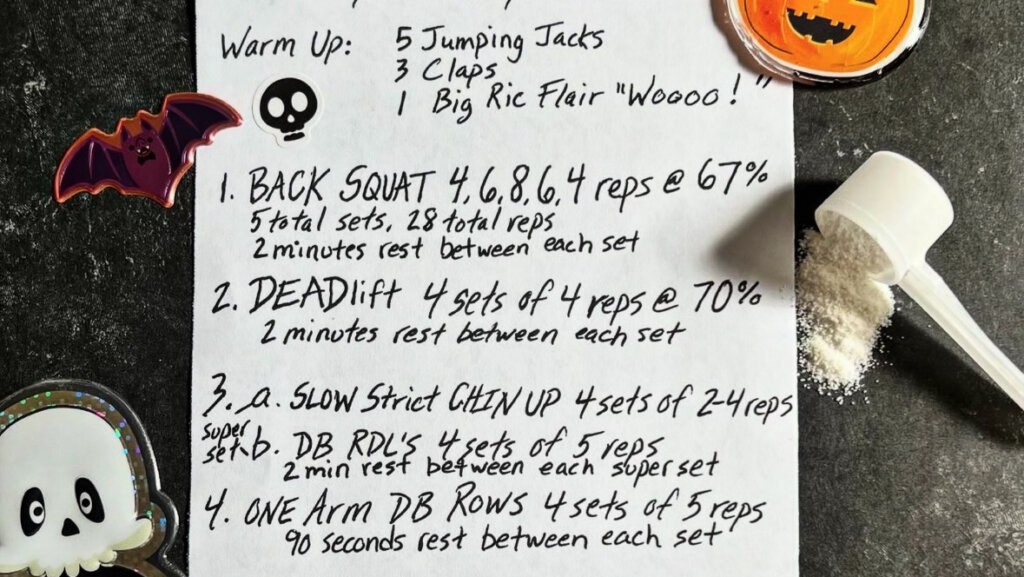 Warm Up: 5 Jumping Jacks
3 Claps
1 Big Ric Flair "Woooo!"
1. BACK SQUAT 4,6,8,6,4 reps @ 67%
5 total sets, 28 total reps
2 minutes rest between each set
2. DEADlift 4 sets of 4 reps @ 70%
2 minutes rest between each set
3. a. SLOW Strict CHIN UP 4 sets of 2-4 reps
super
set b. DB RDL's 4 sets of 5 reps
2 min rest between each super set
4. ONE Arm DB ROWS 4 sets of 5 reps
90 seconds rest between each set